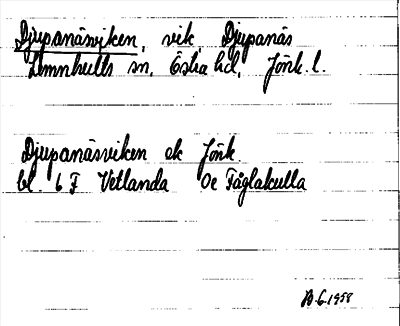 Djupanäsviken, vik, Djupanäs
Lemnhults sn, Östra hd, Jönk. l.
Djupanäsviken ek Jönk
bl 6 F Vetlanda 0e Fåglakulla
1958